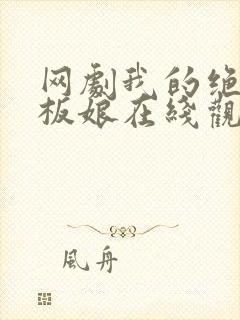 网劇我的绝
板娘在綫觀
風舟